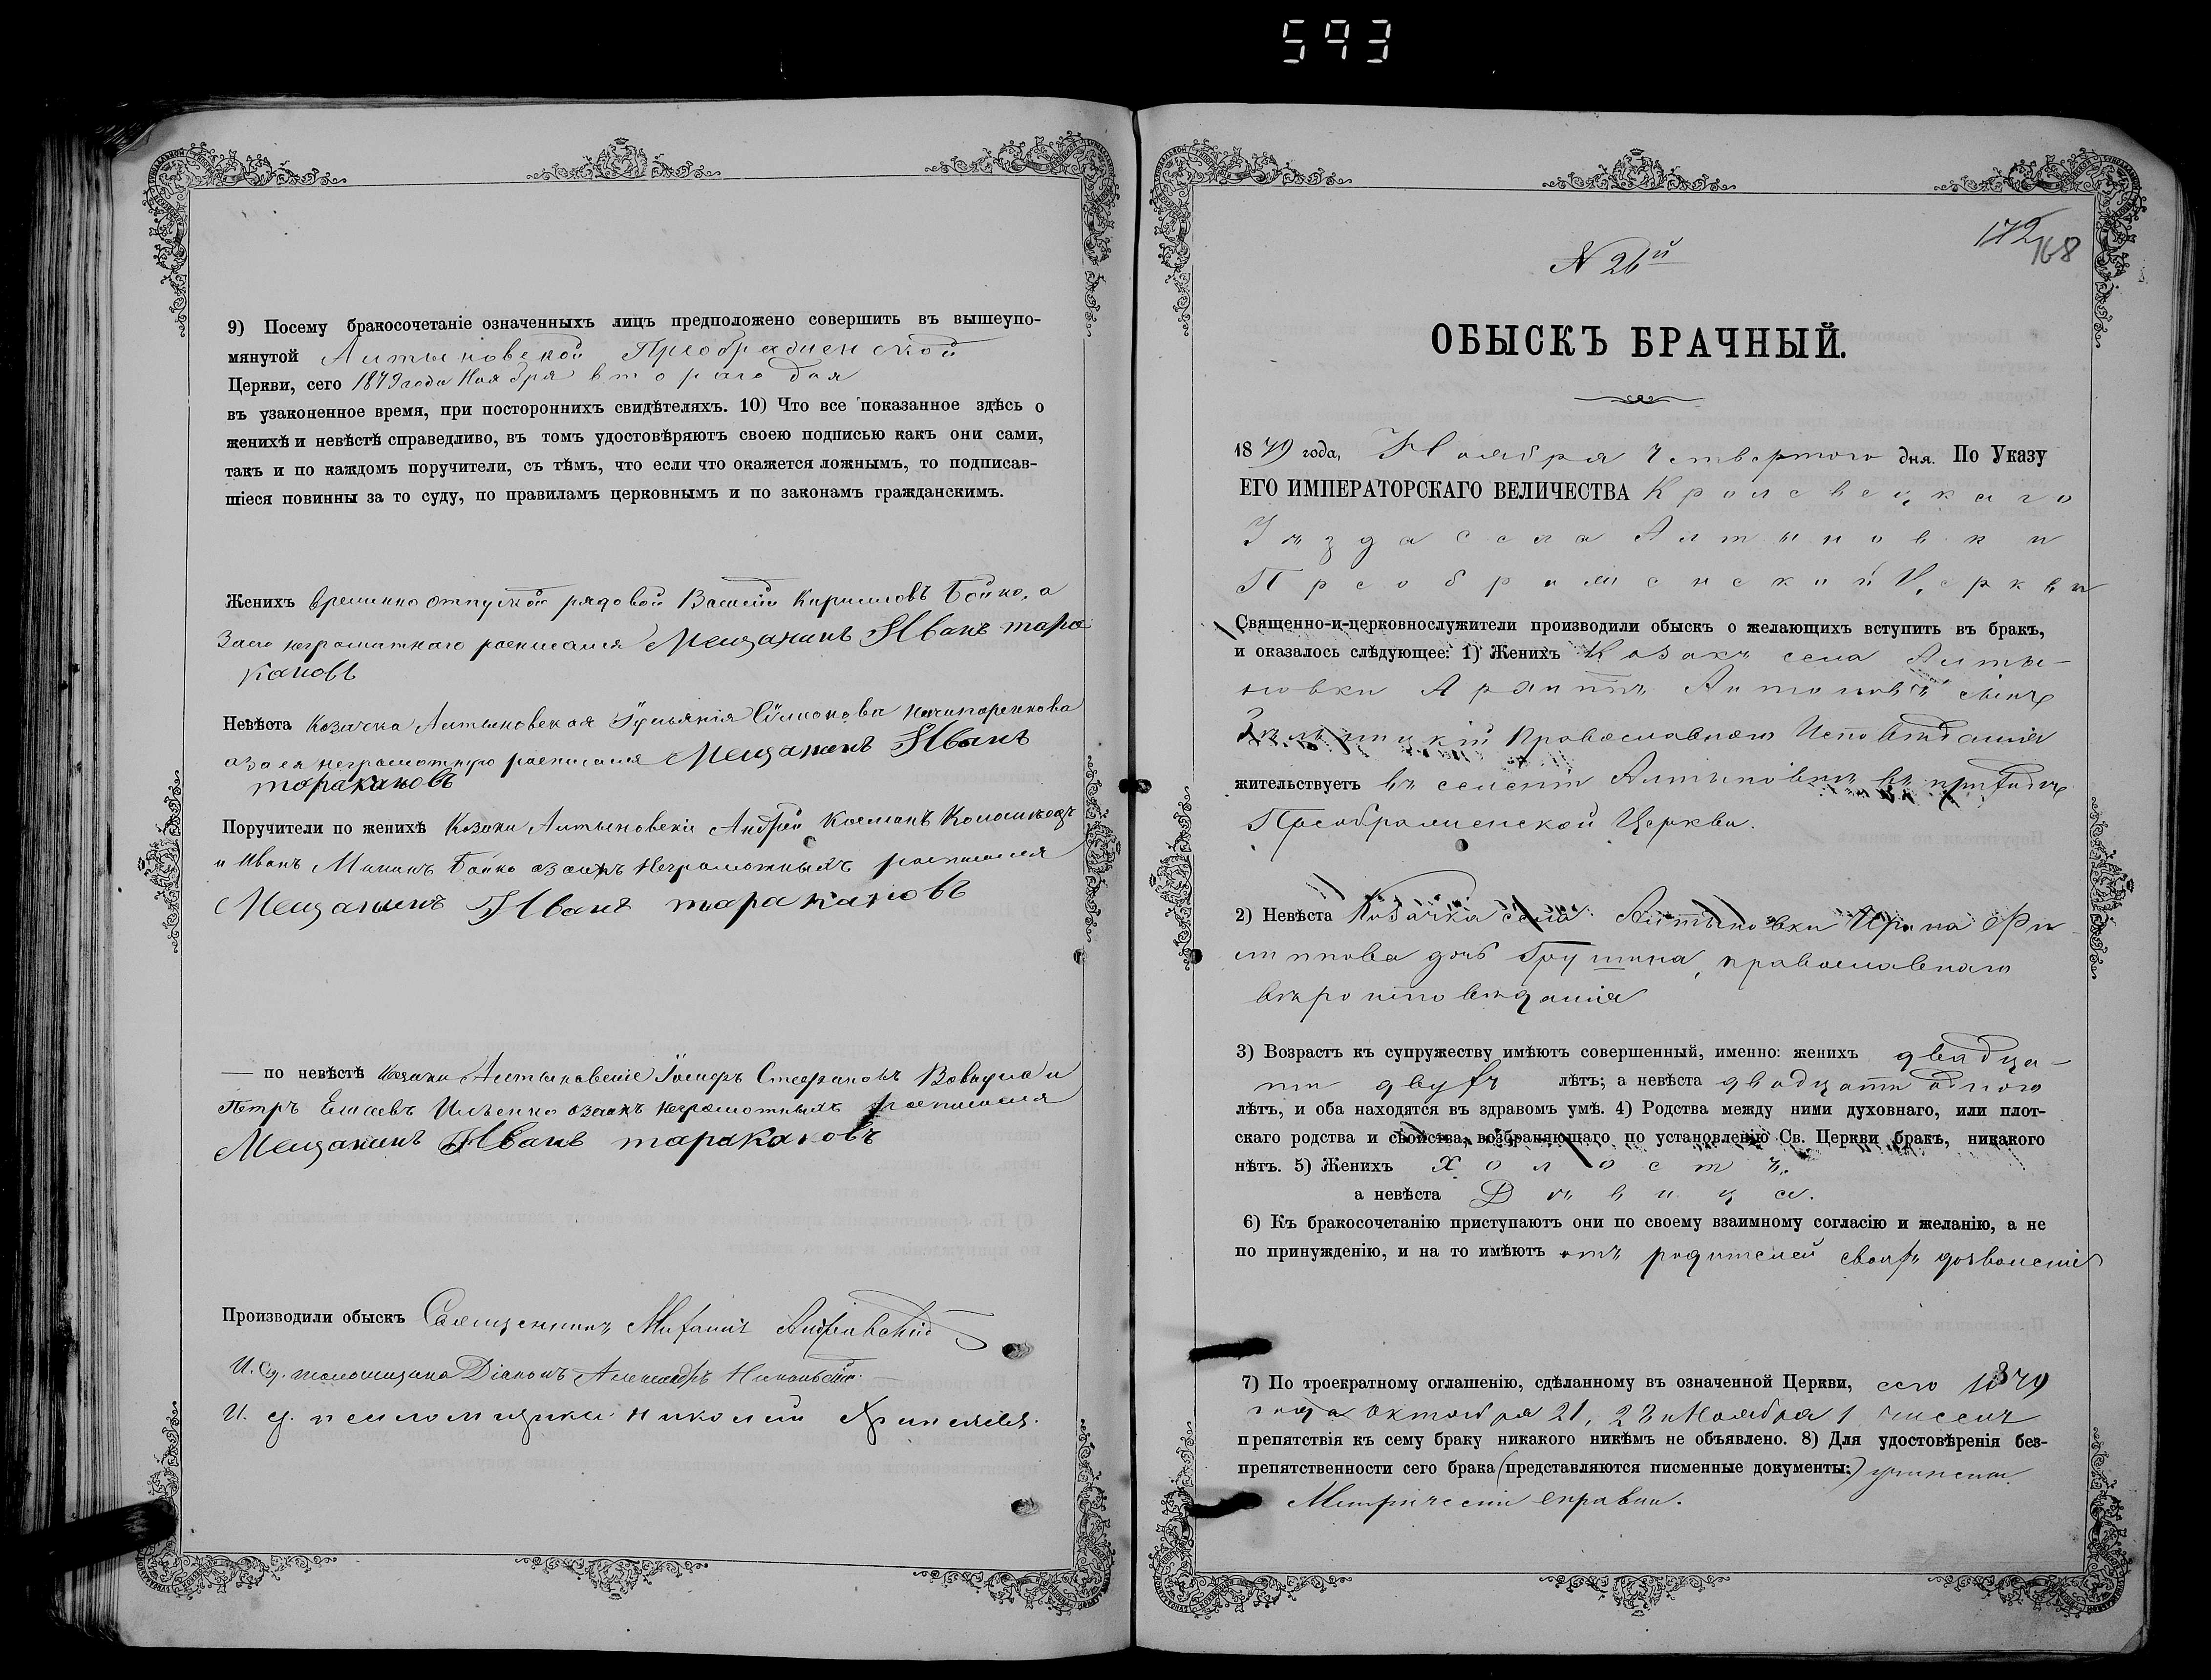 593
9) Посему бракосочетаніе означенныхъ лицъ предположено совершить въ вышеупо-
мянутой Алтыновской Преображенской
Церкви, сего 1879 года Ноября втораго дня
въ узаконенное время, при постороннихъ свидѣтеляхъ. 10) Что все показанное здѣсь о
женихѣ и невѣстѣ справедливо, въ томъ удостовѣряютъ своею подписью какъ они сами,
такъ и по каждомъ поручители, съ тѣмъ, что если что окажется ложнымъ, то подписав-
шіеся повинны за то суду, по правиламъ церковнымъ и по законамъ гражданскимъ.
Женихъ временно отпускной рядовой Василій Кириловъ Бойко, а
заего неграматнаго росписался Мещанинъ Иванъ тара
кановъ
Невѣста Козачка Алтыновская Іулianія
азаея неграмотную росписался Мещанинъ Иванъ
таракановъ
Поручители по женихѣ Козаки Алтыновскіи Андрей
и Иванъ Мининъ Бойко азаихъ неграмотныхъ росписался
Мещанинъ Иванъ таракановъ
— по невѣстѣ Козаки Алтыновскіе Стефановъ и
Петръ Елисеевъ азаихъ неграмотныхъ росписался
Мещанинъ Иванъ таракановъ
Производили обыскъ Священникъ Михаилъ
И. д. псаломщика Діаконъ Александръ
И. д. псаломщика Николай
172
168
N 26й
ОБЫСКЪ БРАЧНЫЙ.
1879 года, Ноября Четвертого дня. По Указу
ЕГО ИМПЕРАТОРСКАГО ВЕЛИЧЕСТВА Кролевецкаго
Уѣзда села Алтыновки
Преображенской Церкви
Священно-и-церковнослужители производили обыскъ о желающихъ вступить въ бракъ,
и оказалось слѣдующее: 1) Женихъ Козакъ села Алты-
новки Антоновъ сынъ
Православного Исповѣданія
жительствуетъ въ селеніи Алтыновкѣ въ приходѣ
Преображенской Церкви.
2) Невѣста Козачка села Алтыновки Ирина Фи-
липпова дочь Грушина, православнаго
вѣроисповѣданія
3) Возрастъ къ супружеству имѣютъ совершенный, именно: женихъ двадца-
ти двухъ лѣтъ; а невѣста двадцати одного
лѣтъ, и оба находятся въ здравомъ умѣ. 4) Родства между ними духовнаго, или плот-
скаго родства и свойства, возбраняющаго по установленію Св. Церкви бракъ, никакого
нѣтъ. 5) Женихъ Холостъ.
а невѣста Дѣвица.
6) Къ бракосочетанію приступаютъ они по своему взаимному согласію и желанію, а не
по принужденію, и на то имѣютъ отъ родителей своихъ дозволеніе
7) По троекратному оглашенію, сдѣланному въ означенной Церкви, сего 1879
года Октября 21, 28 и Ноября 1 чиселъ
препятствія къ сему браку никакого никѣмъ не объявлено. 8) Для удостовѣренія без-
препятственности сего брака (представляются писменные документы:) учинены
Метрическіи справки.